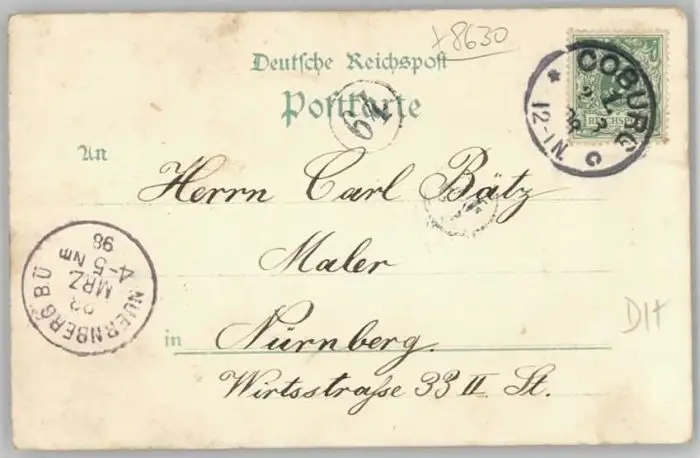 +8630
Deutsche Reichspost
Postkarte
An
Herrn Carl Bätz
Maler
in Nürnberg.
Wirtsstraße 33 II. St.
COBURG
12-1N
C
REICHSPOST
NUERNBERG B.Ü
MRZ
4-5 NM
98
D1+